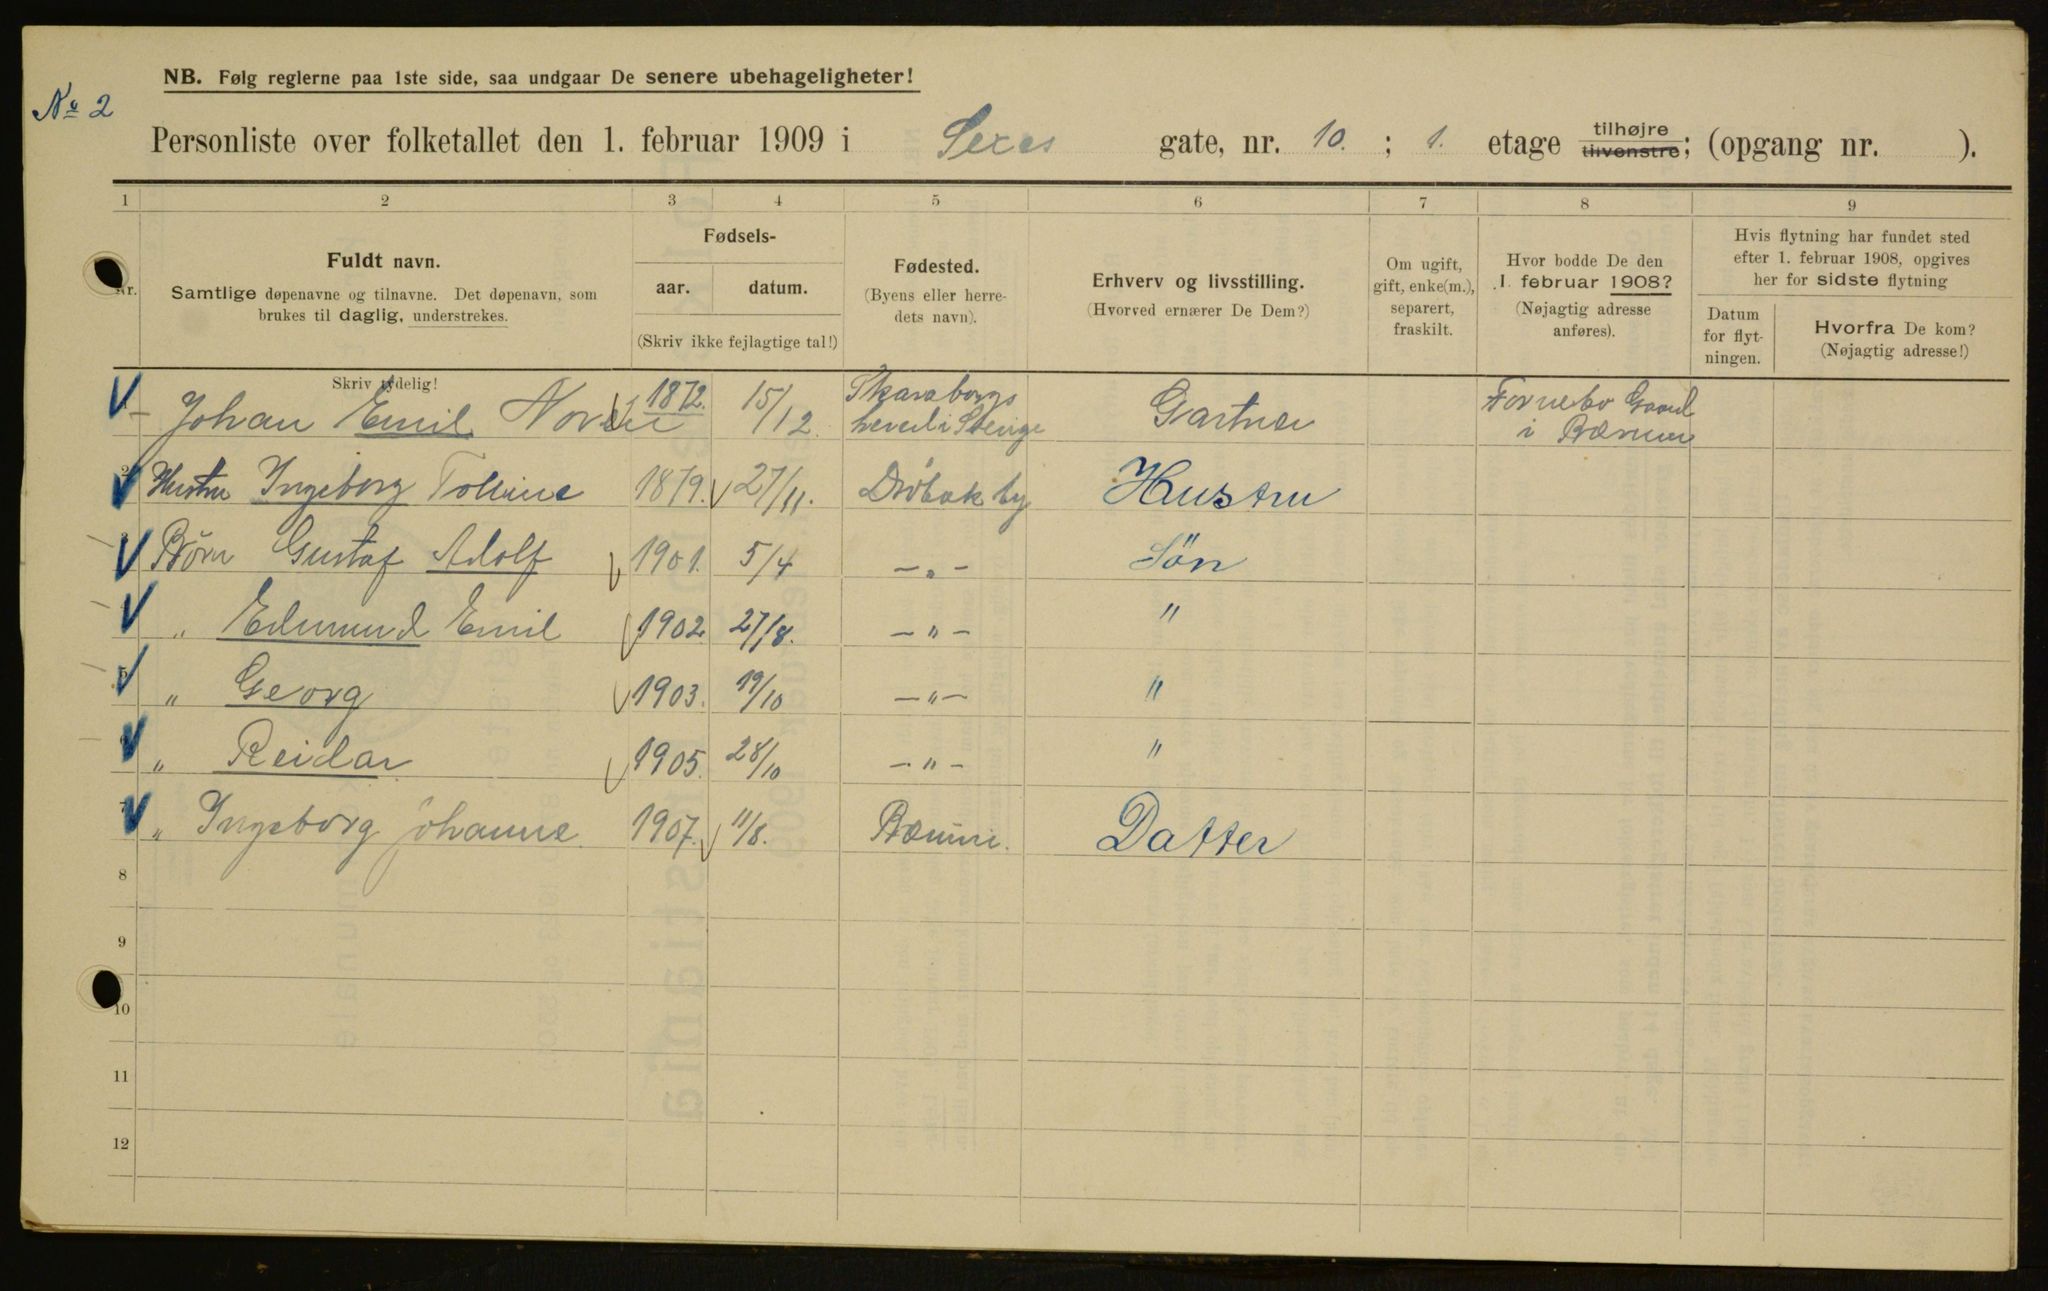 NB. Følg reglerne paa 1ste side, saa undgaar De senere ubehageligheter!
No 2
Personliste over folketallet den 1. februar 1909 i Sexes gate, nr. 10. ; 1. etage tilhøjre tilvenstre; (opgang nr. ).
1 2 3 4 5 6 7 8 9
Nr.
Fuldt navn.
Samtlige døpenavne og tilnavne. Det døpenavn, som
brukes til daglig, understrekes.
Skriv tydelig!
Fødsels-
aar. datum.
(Skriv ikke fejlagtige tal!)
Fødested.
(Byens eller herre-
dets navn).
Erhverv og livsstilling.
(Hvorved ernærer De Dem?)
Om ugift,
gift, enke(m.),
separert,
fraskilt.
Hvor bodde De den
1. februar 1908?
(Nøjagtig adresse
anføres).
Hvis flytning har fundet sted
efter 1. februar 1908, opgives
her for sidste flytning
Datum
for flyt-
ningen.
Hvorfra De kom?
(Nøjagtig adresse!)
Johan Emil 1872. 15/12 Skaraborgs Gartner Fornebo Gaard
i Bærum
2 Hustru Ingeborg 1879. 27/11. Drøbak by Hustru
3 Børn Gustaf Adolf 1901. 5/4 — „ — Søn
4 „ Edmund Emil 1902 27/8. — „ — "
5 „ Georg 1903. 19/10 — „ — "
6 „ Reidar 1905. 28/10 — „ — "
7 „ Ingeborg Johanne 1907. 11/8. Bærum. Datter
8
9
10
11
12